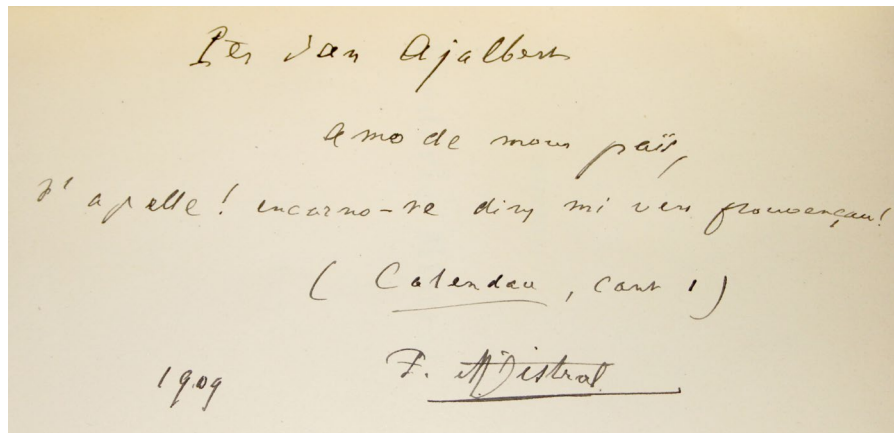 Pèr Jan Ajalbert
Amo de moun païs,
T'apelle! encarno-te dins mi vers prouvençau!
(Calendau, cant 1)
1909 F. Mistral